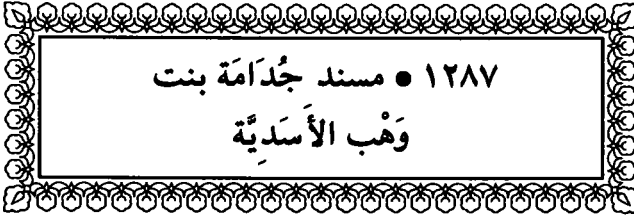 ١٢٨٧ • مسند جُدَامَة بنت
وَهْب الأَسَدِيَّة